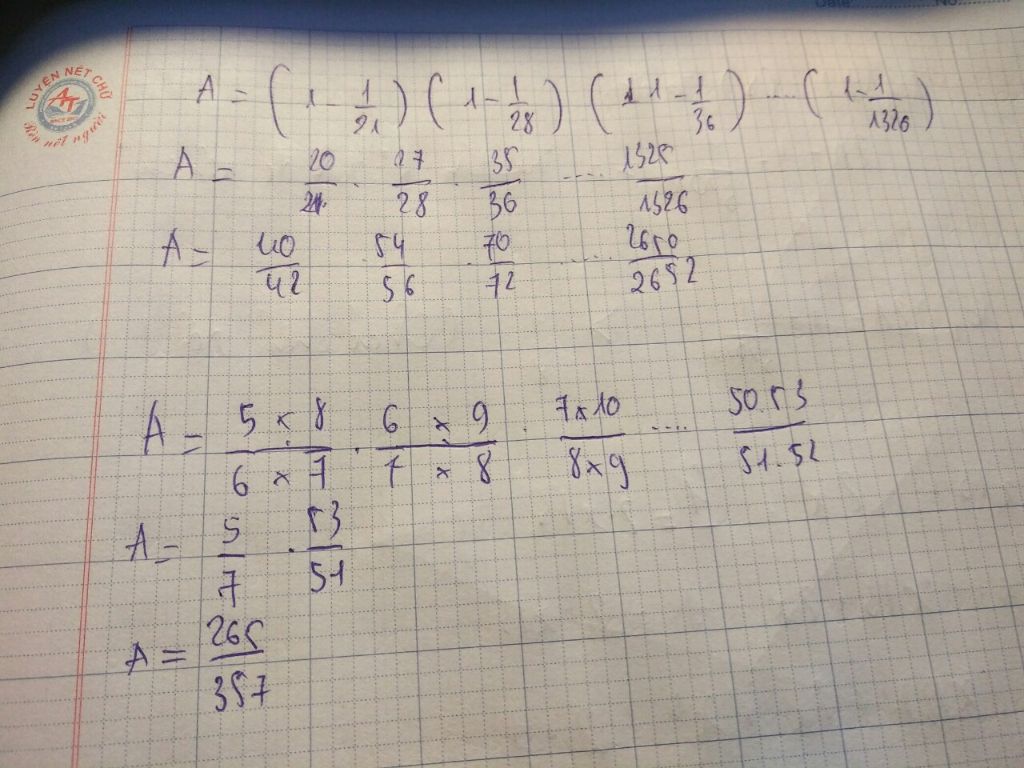 Date No.
LUYỆN NÉT CHỮ
AT
Rèn nết người
A = ( 1 - 1/21 ) ( 1 - 1/28 ) ( 1 1 - 1/36 ) ..... ( 1 - 1/1326 )
A = 20/21 . 27/28 . 35/36 .... 1325/1326
A = 40/42 . 54/56 . 70/72 ..... 2650/2652
A = 5 x 8/6 x 7 . 6 x 9/7 x 8 . 7 x 10/8 x 9 .... 50.53/51.52
A = 5/7 . 53/51
A = 265/357